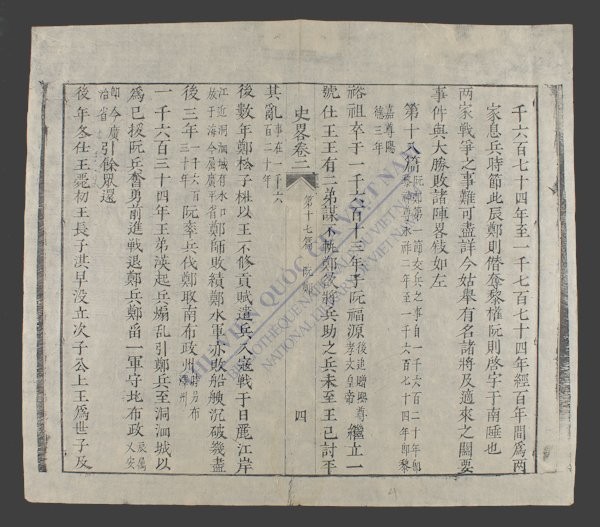 千六百七十四年至一千七百七十四年經百年間爲两
家息兵時節此辰鄭則僭奪黎權阮則啓宇于南陲也
两家戰爭之事難可盡詳今姑舉有名諸將及適來之關要
事件與大勝敗諸陣畧敍如左
第十八篇 阮鄭第一節交兵之事自一千六百二十年卽
黎神尊永祚二年至一千六百七十四年卽黎
嘉尊陽
德三年
裕祖卒于一千六百十三年子阮福源 後追贈熙尊孝文皇帝 繼立一
史畧卷二 第十七篇 阮鄭 四
號仕王王有二弟謀不軌鄭欲將兵助之兵未至王已討平
其亂 事在一千六百二十年
後數年鄭松子杜以王不修貢賦遣兵入寇戰于日麗江岸
江近洞洄城有水口放于海今屬廣平省 鄭師敗績鄭水軍亦敗船艘沉破幾盡
後三年 一千六百三十年 阮率兵伐鄭取南布政州
一千六百三十四年王弟渶起兵煽乱引鄭兵至洞洄城以
爲已援阮兵奮勇前進戰退鄭兵鄭畱一軍守北布政 兹属乂安
卽今廣治省 引餘眾還
後年冬仕王薨初王長子淇早没立次子公上王爲世子及
THƯ VIỆN QUỐC GIA VIỆT NAM
BIBLIOTHEQUE NATIONALE DU VIETNAM
NATIONAL LIBRARY OF VIETNAM